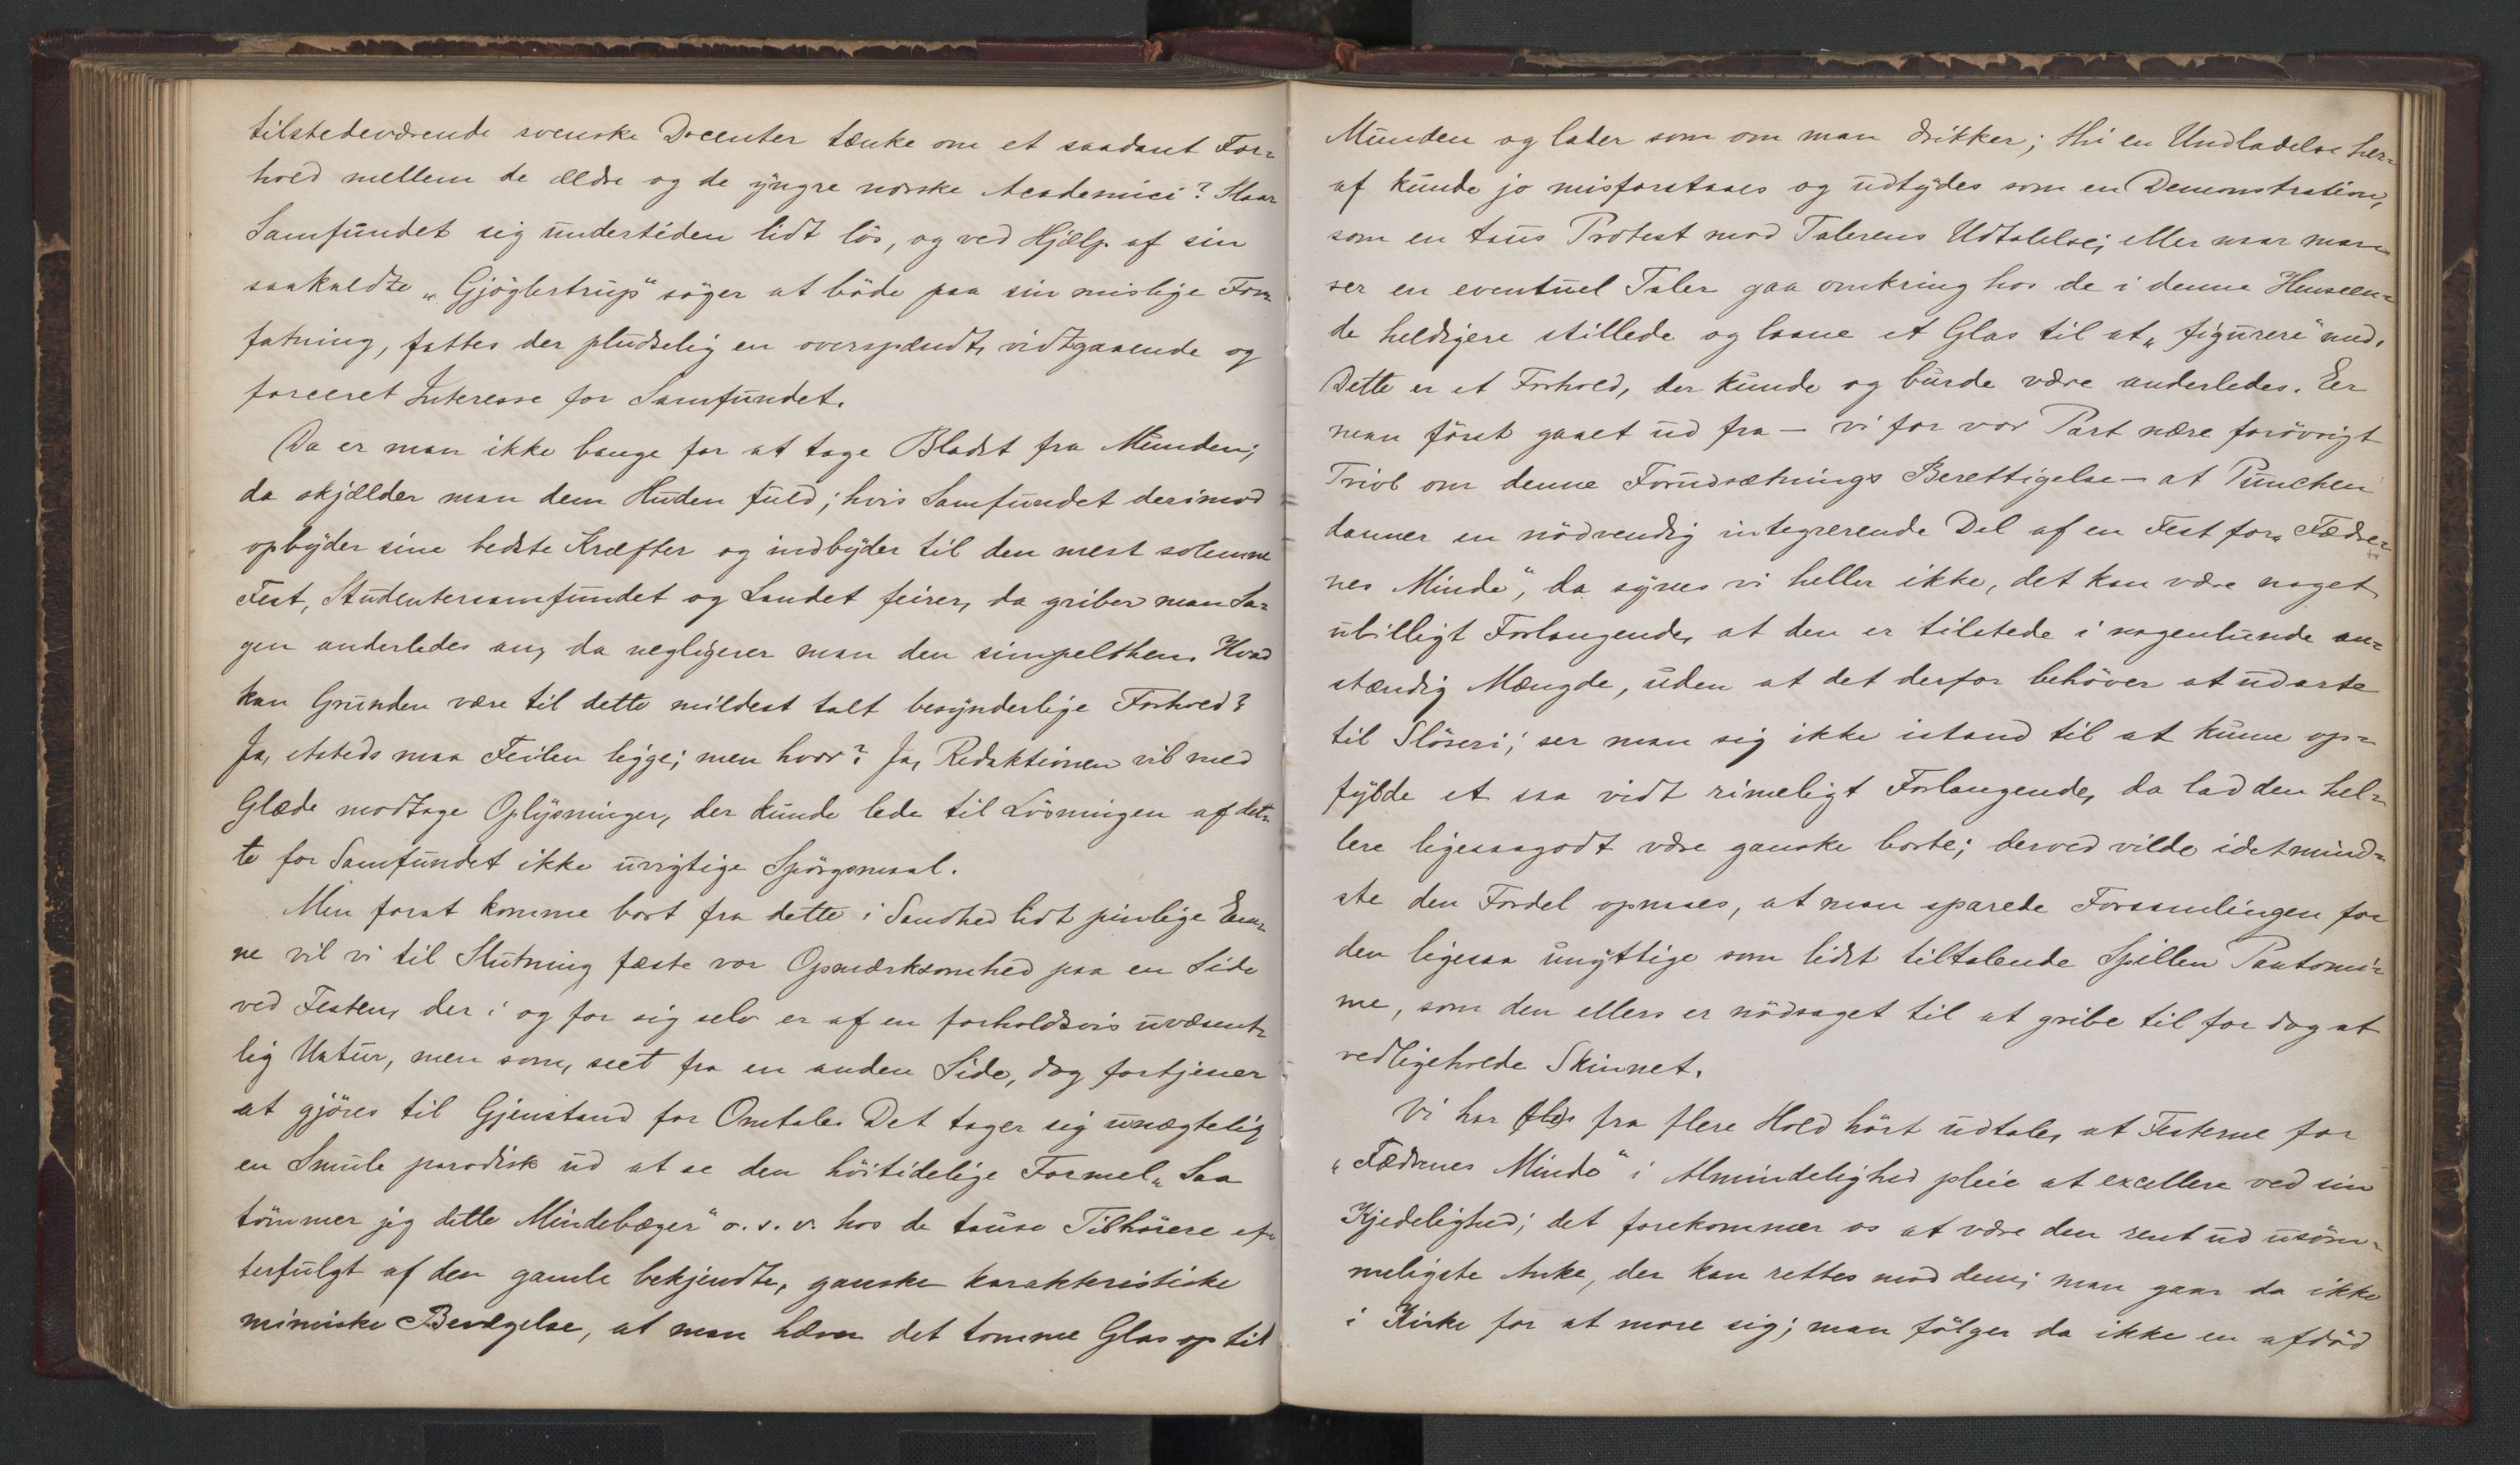 tilstedeværende svenske Docenter tænke om et saadant For-
hold mellem de ældre og de yngre norske Academici? Slaar
Samfundet sig undertiden lidt lös, og ved Hjælp af sin
saakaldte „Gjöglertrup“ söger at böde paa sin mislige For-
fatning, fattes der pludselig en overspændt, vidtgaaende og
forceret Interesse for Samfundet.
Da er man ikke bange for at tage Bladet fra Munden;
da skjælder man dem Huden fuld; hvis Samfundet derimod
opbyder sine bedste Kræfter og indbyder til den mest solemne
Fest, Studentersamfundet og Landet feirer, da griber man Sa-
gen anderledes an, da negligerer man den simpelthen. Hvad
kan Grunden være til dette mildest talt besynderlige Forhold?
Ja, etsteds maa Feilen ligge; men hvor? Ja, Redaktionen vil med
Glæde modtage Oplysninger, der kunde lede til Lösningen af det-
te for Samfundet ikke uvigtige Spörgsmaal.
Men forat komme bort fra dette i Sandhed lidt pinlige Em-
ne vil vi til Slutning fæste vor Opmærksomhed paa en Side
ved Festen, der i og for sig selv er af en forholdsvis uvæsent-
lig Natur, men som, seet fra en anden Side, dog fortjener
at gjöres til Gjenstand for Omtale. Det tager sig unægtelig
en Smule parodisk ud at se den höitidelige Formel „Saa
tömmer jeg dette Mindebæger“ o. s. v. hos de tause Tilhörere ef-
terfulgt af den gamle bekjendte, ganske karakteristiske
mimiske Bevægelse, at man hæver det tomme Glas op til
Munden og lader som om man drikker; thi en Undladelse her-
af kunde jo misforstaaes og udtydes som en Demonstration,
som en taus Protest mod Talerens Udtalelse; eller naar man
ser en eventuel Taler gaa omkring hos de i denne Henseen-
de heldigere stillede og laane et Glas til at „figurere“ med.
Dette er et Forhold, der kunde og burde være anderledes. Er
man först gaaet ud fra – vi for vor Part nære forövrigt
Tvivl om denne Forudsætnings Berettigelse – at Punchen
danner en nödvendig integrerende Del af en Fest for „Fædre-
nes Minde“, da synes vi heller ikke, det kan være noget
ubilligt Forlangende, at den er tilstede i nogenlunde an-
stændig Mængde, uden at det derfor behöver at udarte
til Slöseri; ser man sig ikke istand til at kunne op-
fylde et saa vidt rimeligt Forlangende, da lad den hel-
lere ligesaagodt være ganske borte; derved vilde idetmind-
ste den Fordel opnaaes, at man sparede Forsamlingen for
den ligesaa unyttige som lidet tiltalende Spillen Pantomi-
me, som den ellers er nödsaget til at gribe til for dog at
vedligeholde Skinnet.
Vi har fra flere Hold hört udtale, at Festerne for
„Fædrenes Minde“ i Almindelighed pleie at excellere ved sin
Kjedelighed; det forekommer os at være den rent ud usöm-
meligste Anke, der kan rettes mod dem; man gaar da ikke
i Kirke for at more sig; man fölger da ikke en afdöd